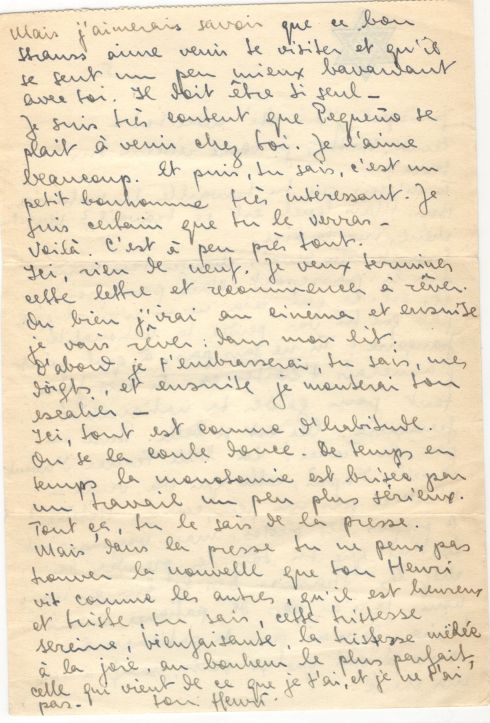 Mais j'aimerais savoir que ce bon
Strauss aime venir te visiter et qu'il
se sent un peu mieux bavardant
avec toi. Il doit être si seul –
Je suis très content que Pequeño se
plaît à venir chez toi. Je l'aime
beaucoup. Et puis, tu sais, c'est un
petit bonhomme très intéressant. Je
suis certain que tu le verras –
Voilà. C'est à peu près tout.
Ici, rien de neuf. Je veux terminer
cette lettre et recommencer à rêver.
Ou bien j'irai au cinéma et ensuite
je vais rêver : dans mon lit.
D'abord je t'embrasserai, tu sais, mes
doigts, et ensuite je monterai ton
escalier –
Ici, tout est comme d'habitude.
On se la coule douce. De temps en
temps la monotomie est brisée par
un travail un peu plus sérieux.
Tout ça, tu le sais de la presse.
Mais dans la presse tu ne peux pas
trouver la nouvelle que ton Henri
vit comme les autres, qu'il est heureux
et triste, tu sais, cette tristesse
sereine, bienfaisante, la tristesse mêlée
à la joie, au bonheur le plus parfait,
celle qui vient de ce que je t'ai, et je ne t'ai
pas – ton Henri.